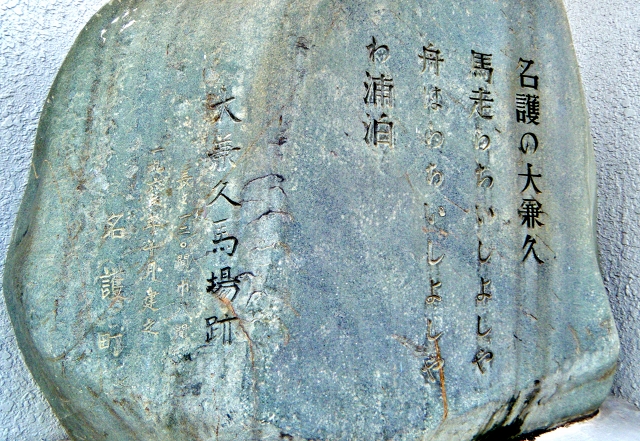 名護の大兼久
馬走らちいしよしや
舟はらちいしよしや
わ浦泊
大兼久馬場跡
三〇間巾 間
年 月建之
名護町